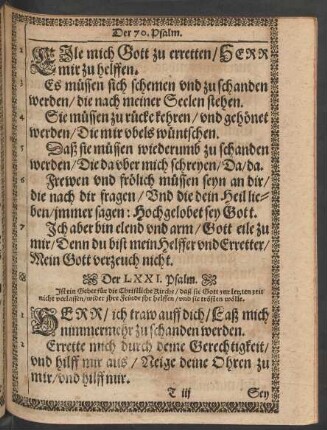 Der 70. Psalm.
EIle mich Gott zu erretten / HERR
mir zu helffen.
Es müssen sich schemen vnd zu schanden
werden / die nach meiner Seelen stehen.
Sie müssen zu rücke kehren / vnd gehönet
werden / Die mir vbels wüntschen.
Daß sie müssen wiederumb zu schanden
werden / Die da vber mich schreyen / Da / da.
Frewen vnd frölich müssen seyn an dir /
die nach dir fragen / Vnd die dein Heil lie-
ben / jmmer sagen: Hochgelobet sey Gott.
Ich aber bin elend vnd arm / Gott eile zu
mir / Denn du bist mein Helffer vnd Erretter /
Mein Gott verzeuch nicht.
Der LXXI. Psalm.
Ist ein Gebet für die Christliche Kirche / daß sie Gott zur letzten zeit
nicht verlassen / wider jhre Feinde jhr helffen / vnd sie trösten wölle.
HERR / ich traw auff dich / Laß mich
nimmermehr zu schanden werden.
Errette mich durch deine Gerechtigkeit /
vnd hilff mir aus / Neige deine Ohren zu
mir / vnd hilff mir.
T iij Sey